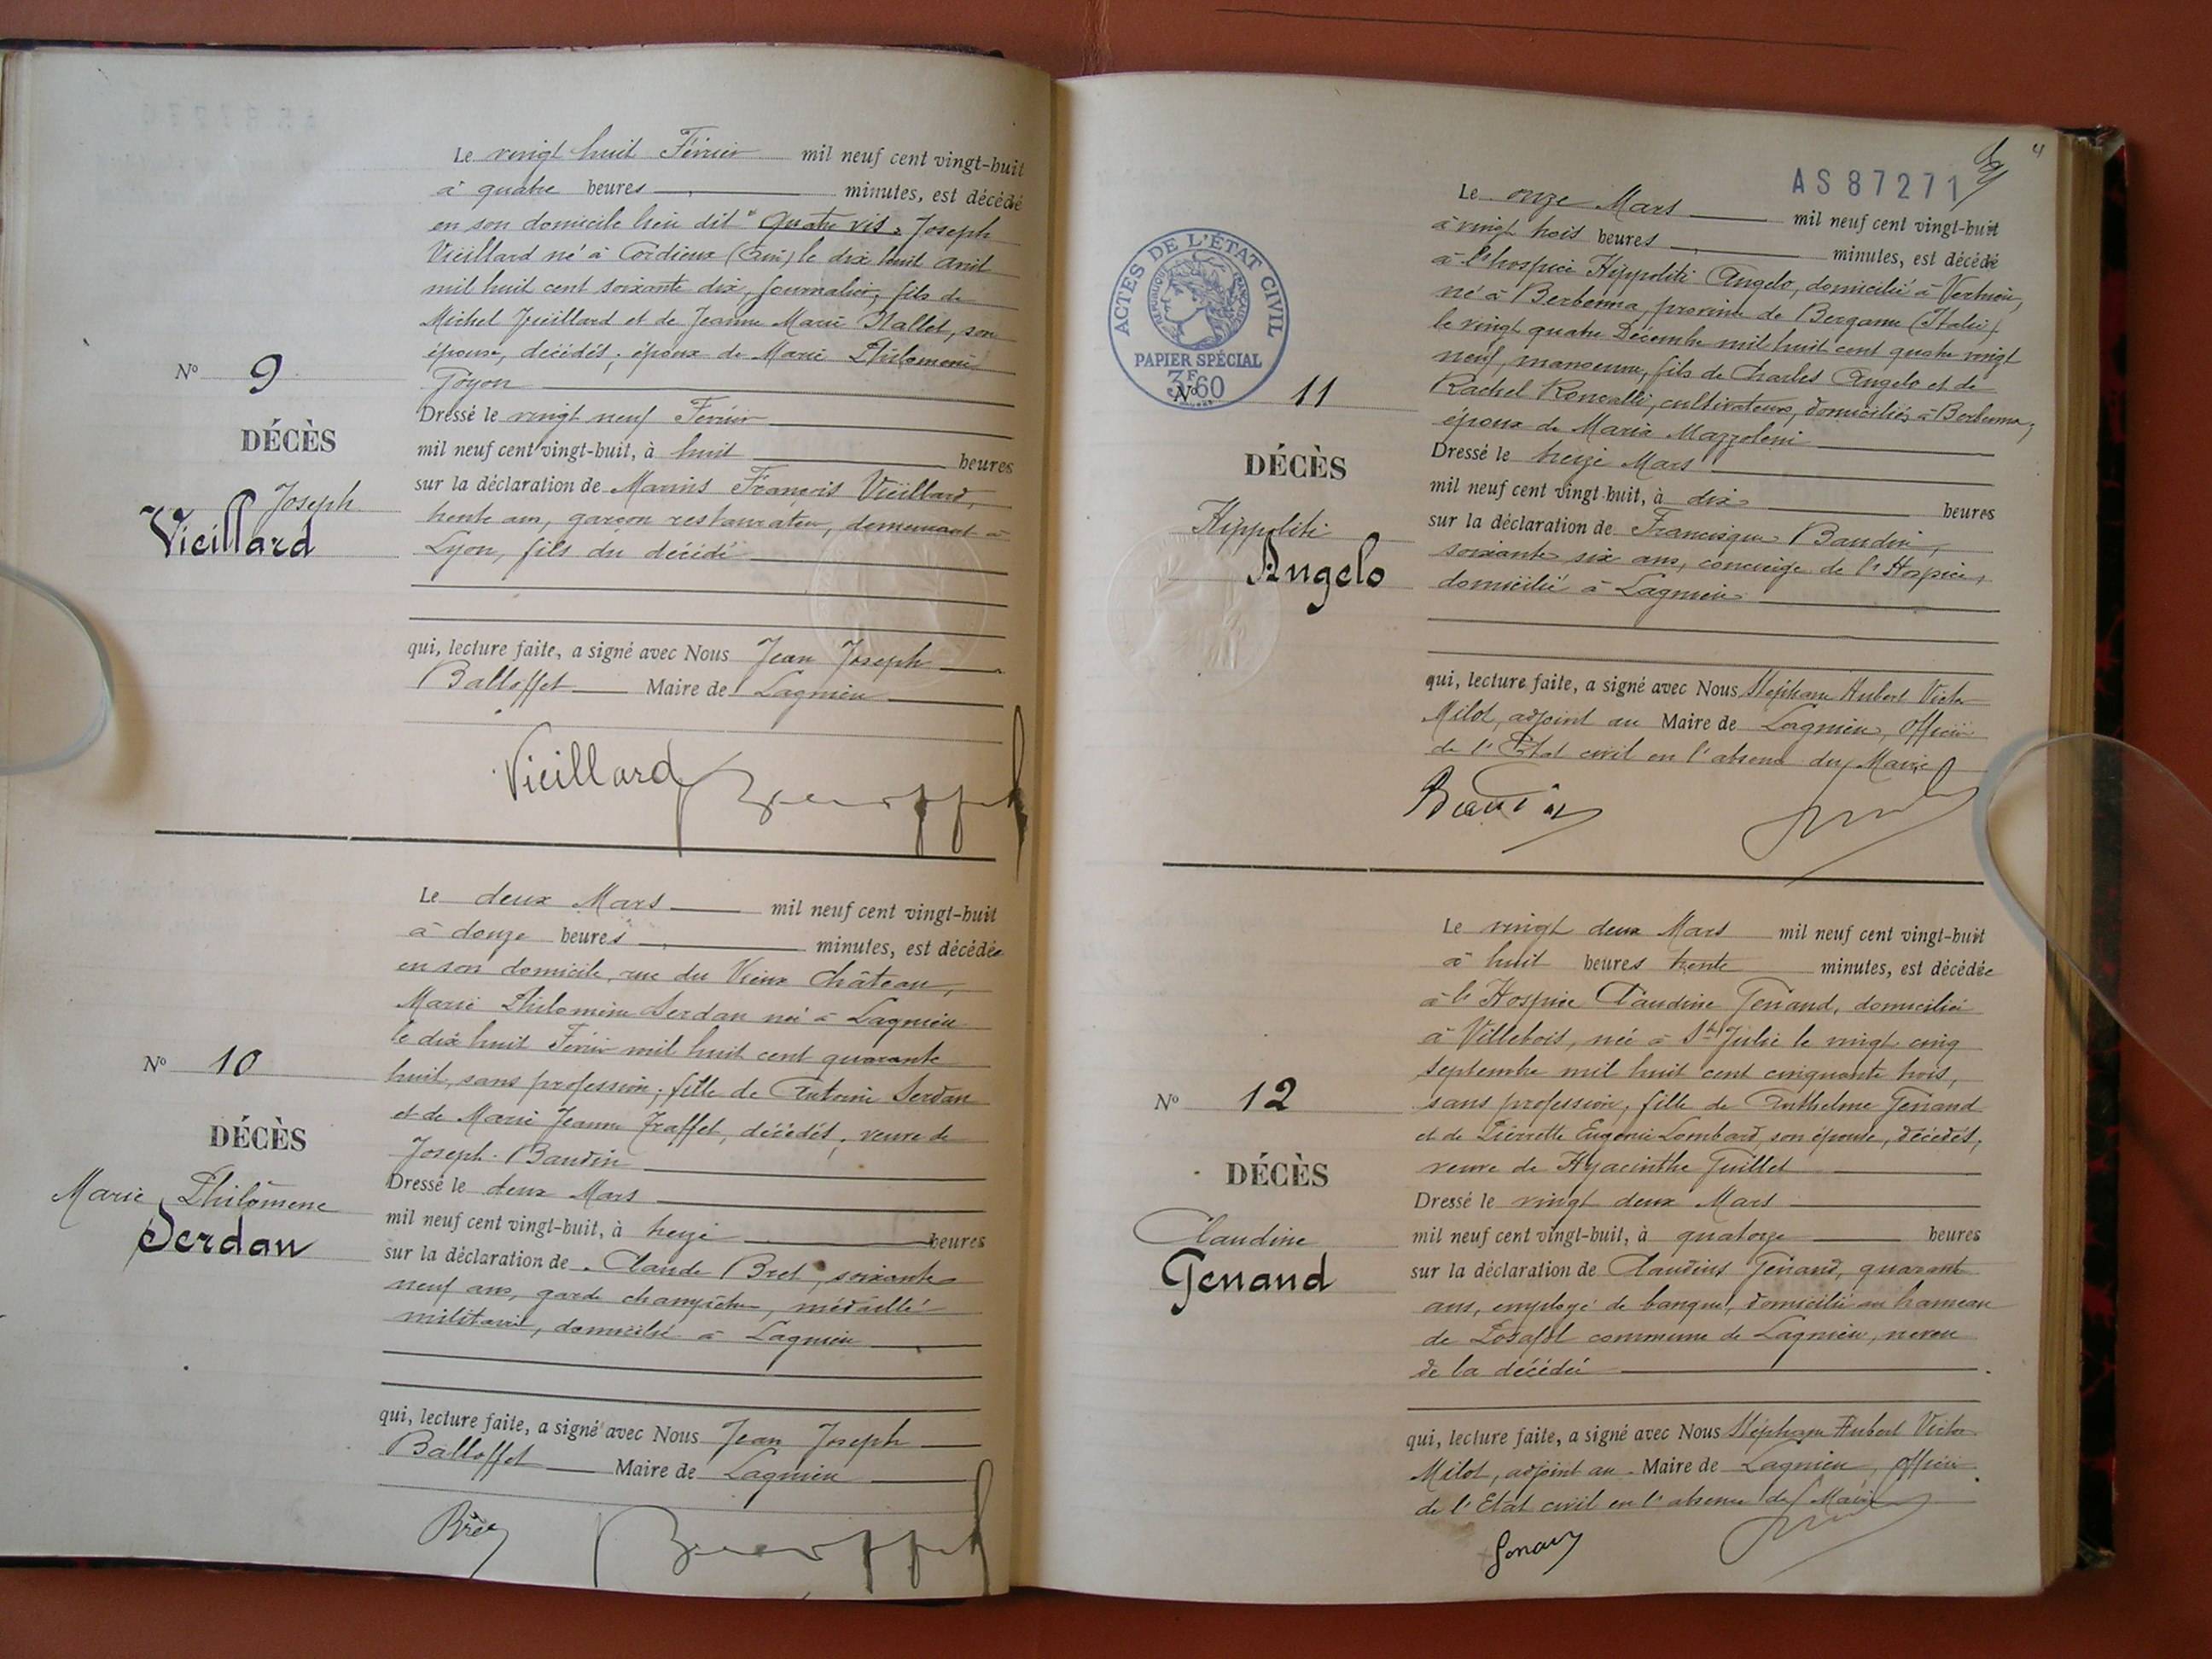 Le vingt huit Février mil neuf cent vingt-huit
à quatre heures minutes, est décédé
en son domicile lieu dit "Quatre vis" Joseph
Vieillard né à Cordieux (Ain) le dix huit avril
mil huit cent soixante dix, journalier, fils de
Michel Vieillard et de Jeanne Marie Mallet, son
épouse, décédés, époux de Marie Philomène
Goyon
Nº 9
DÉCÈS
Joseph
Vieillard
Dressé le vingt neuf Février
mil neuf cent vingt-huit, à huit heures
sur la déclaration de Marius François Vieillard,
trente ans, garçon restaurateur, demeurant à
Lyon, fils du décédé
qui, lecture faite, a signé avec Nous Jean Joseph
Balloffet Maire de Lagnieu
Vieillard
Le deux Mars mil neuf cent vingt-huit
à douze heures minutes, est décédée
en son domicile, rue du Vieux Château,
Marie Philomène Serdan née à Lagnieu
le dix huit Février mil huit cent quarante
huit, sans profession, fille de Antoine Serdan
et de Marie Jeanne Traffet, décédés, veuve de
Joseph Baudin
Nº 10
DÉCÈS
Marie Philomène
Serdan
Dressé le deux Mars
mil neuf cent vingt-huit, à treize heures
sur la déclaration de Claude Bret, soixante
neuf ans, garde champêtre, médaillé
militaire, domicilié à Lagnieu
qui, lecture faite, a signé avec Nous Jean Joseph
Balloffet Maire de Lagnieu
AS87271
4
ACTES DE L'ÉTAT CIVIL
RÉPUBLIQUE FRANÇAISE
PAPIER SPÉCIAL
3F60
Le onze Mars mil neuf cent vingt-huit
à vingt trois heures minutes, est décédé
à l'hospice Hippoliti Angelo, domicilié à Vertrieu,
né à Berbenna, province de Bergame (Italie)
le vingt quatre Décembre mil huit cent quatre vingt
neuf, manoeuvre, fils de Charles Angelo et de
Rachel Roncalli, cultivateurs, domiciliés à Berbenna,
époux de Maria Mazzoleni
Nº 11
DÉCÈS
Hippoliti
Angelo
Dressé le treize Mars
mil neuf cent vingt-huit, à dix heures
sur la déclaration de Francisque Baudin,
soixante six ans, concierge de l'Hospice,
domicilié à Lagnieu
qui, lecture faite, a signé avec Nous Stéphane Hubert Victor
Milot, adjoint au Maire de Lagnieu, Officier
de l'Etat civil en l'absence du Maire
Baudin
Le vingt deux Mars mil neuf cent vingt-huit
à huit heures trente minutes, est décédée
à l'Hospice Claudine Genand, domiciliée
à Villebois, née à Ste Julie le vingt cinq
septembre mil huit cent cinquante trois,
sans profession, fille de Anthelme Genand
et de Pierrette Eugénie Lombard son épouse, décédés,
veuve de Hyacinthe Guillet
Nº 12
DÉCÈS
Claudine
Genand
Dressé le vingt deux Mars
mil neuf cent vingt-huit, à quatorze heures
sur la déclaration de Claudius Genand, quarante
ans, employé de banque, domicilié au hameau
de Posafol commune de Lagnieu, neveu
de la décédée
qui, lecture faite, a signé avec Nous Stéphane Hubert Victor
Milot, adjoint au Maire de Lagnieu, Officier
de l'Etat civil en l'absence du Maire